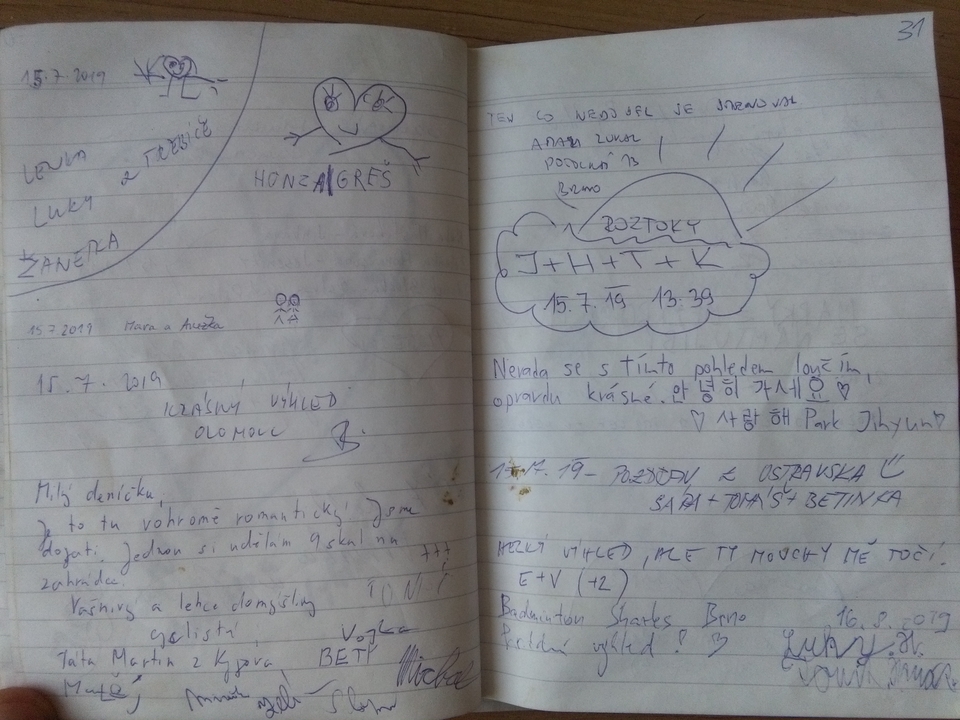 15.7.2019
LENKA
LUKY
ŽANETKA
z TŘEBÍČE
HONZA GREŠ
15.7.2019 Mara a Anežka
15.7.2019
KRÁSNÝ VÝHLED
OLOMOUC
Milý deníčku,
je to tu vohromě romantický. Jsme
dojatí. Jednou si udělám skal na
zahrádce.
Vášnivý a lehce domýšlivý
cyclista,
TONÍ
Vojta
Táta Martin z Kyjova, BETÍ
Matěj
Michal
31
TEN CO NEDOŠEL SE
ADAM ZUKAL
POTOČNÁ 13
Brno
ROZTOKY
J+H+T+K
15.7.19 13:39
Nerada se s tímto pohledem loučím,
opravdu krásné. 안녕히 가세요 ♡
♡ 사랑해 Park Jihyun ♡
17.7.19 - POZDRAV Z OSTRAVSKA
SÁRA + TOMÁŠ + BETINKA
HEZKÝ VÝHLED, ALE TY MOUCHY MĚ TOČÍ!
E+V (+2)
Badminton Sharks Brno 16.8.2019
výhled! Luky.H.